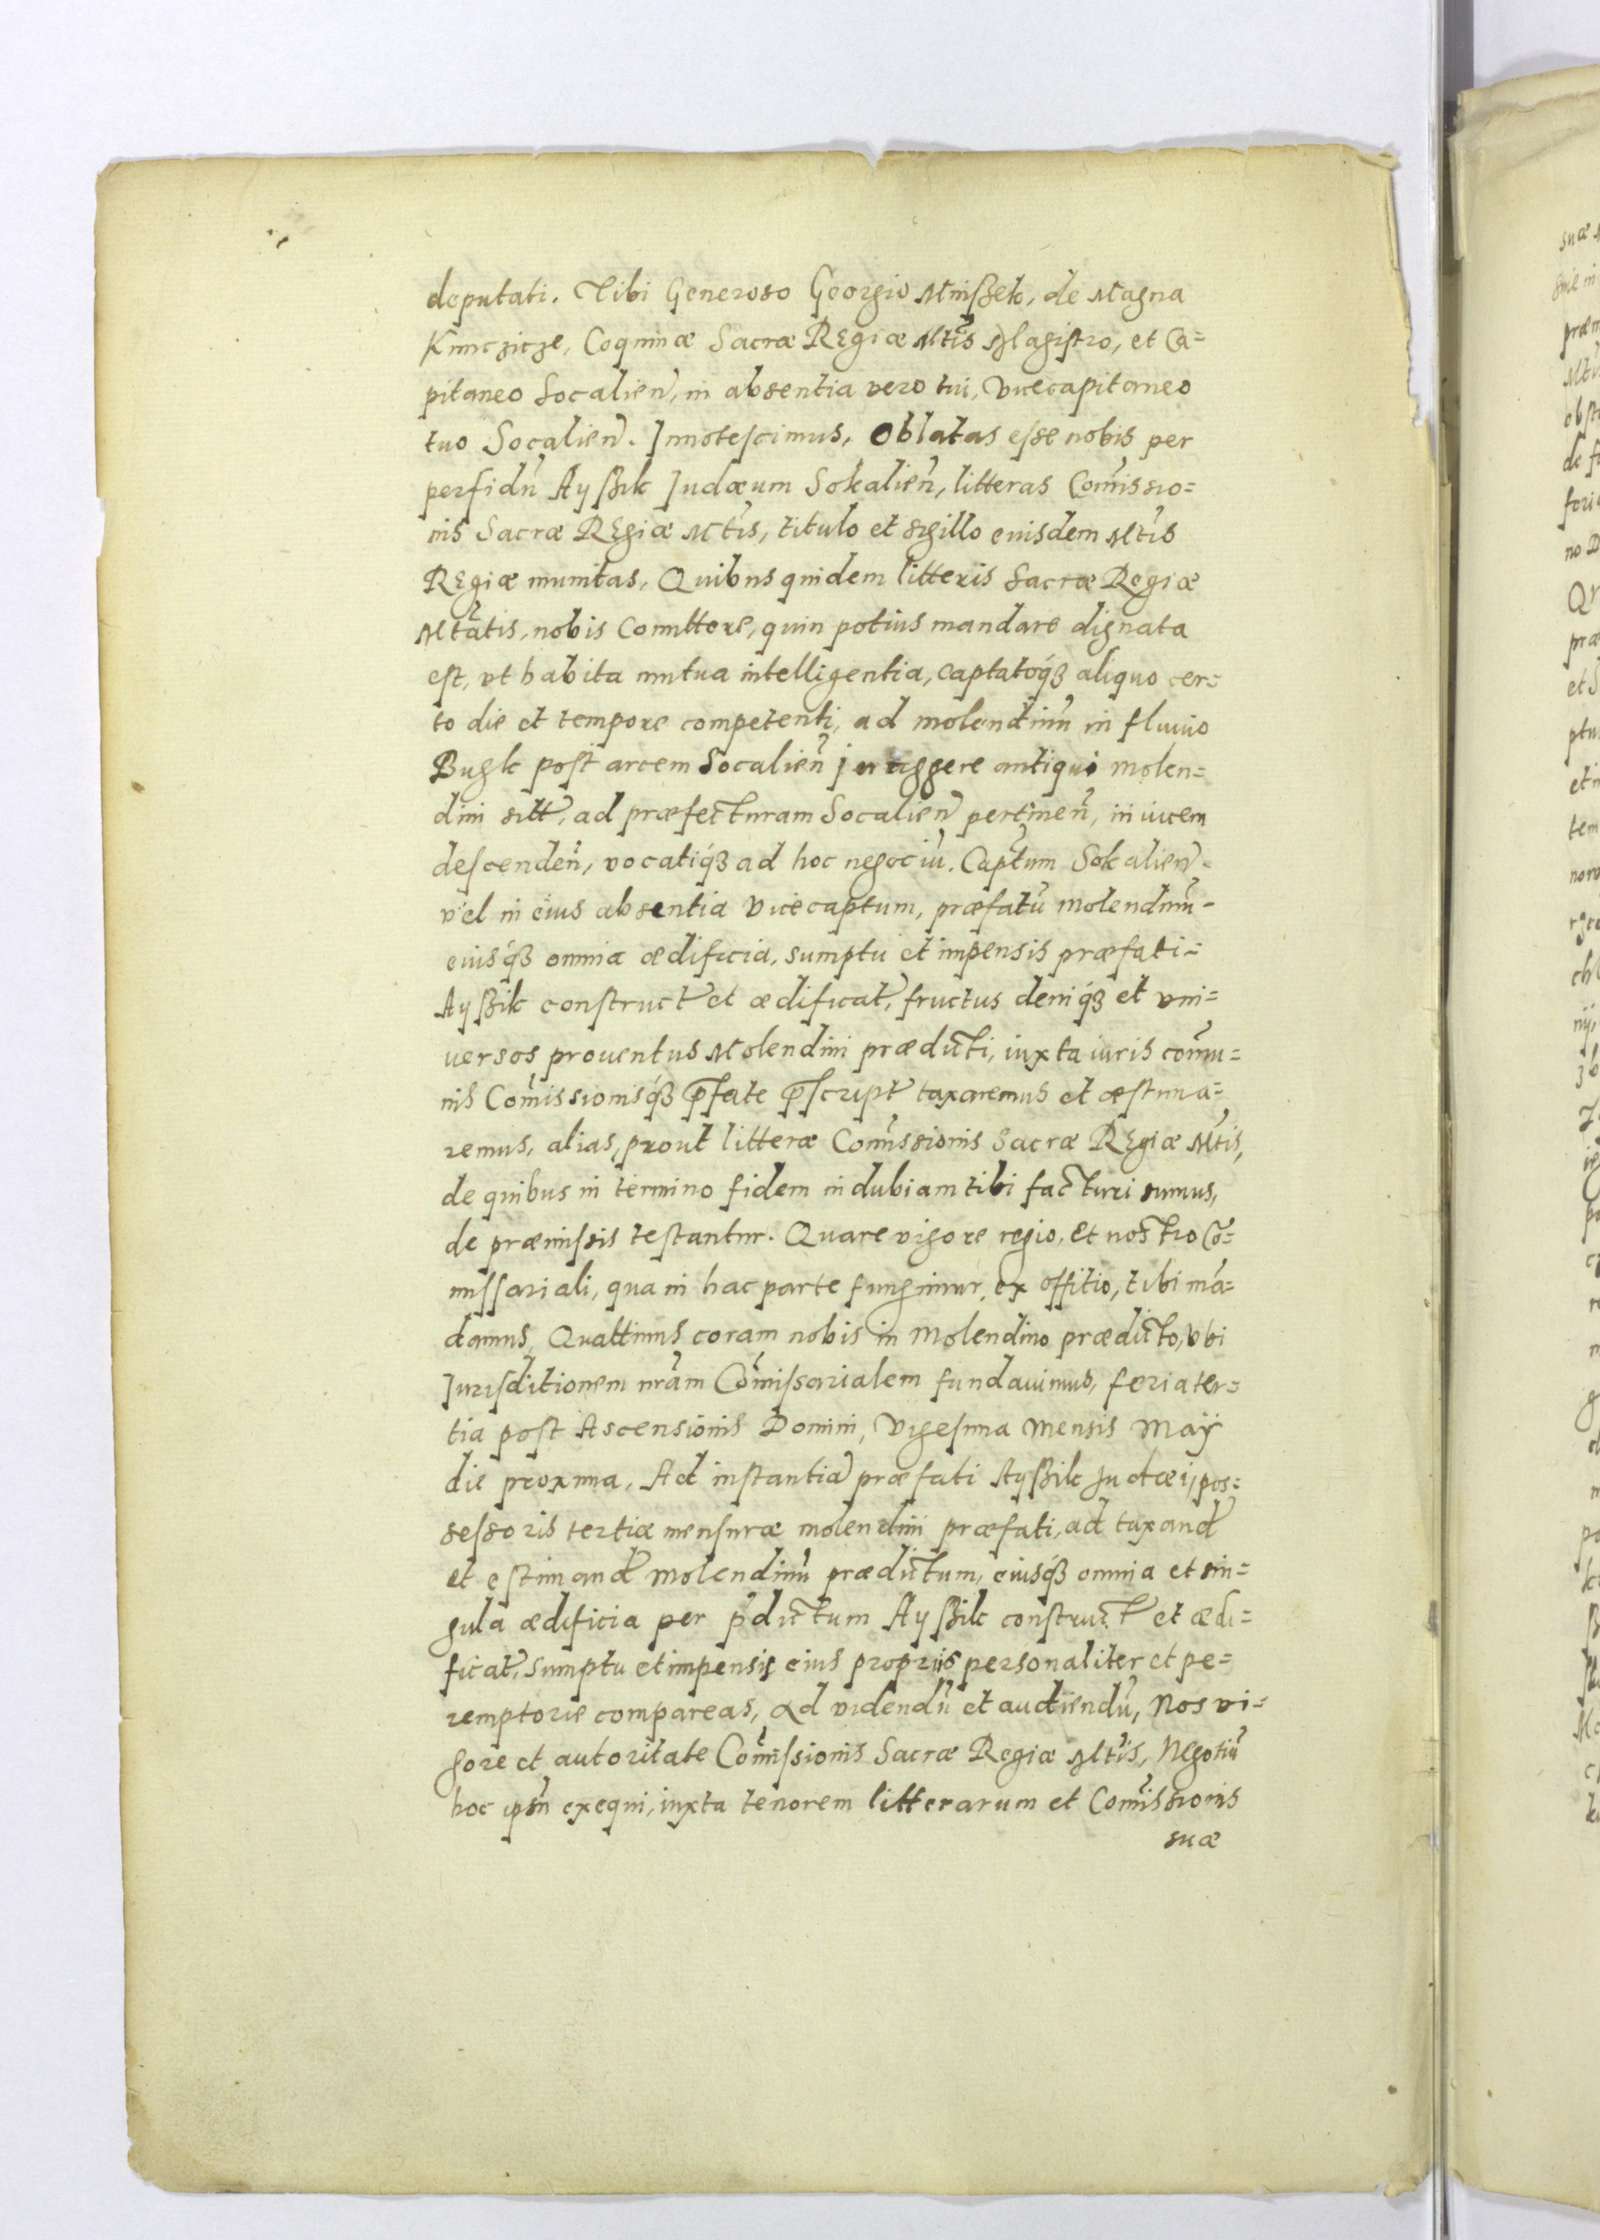 deputati. Tibi Generoso Georgio Mnißek, de Magna
Kunczicze, Coquinæ Sacræ Regiæ Mtis Magistro, et Ca=
pitaneo Socalien, in absentia vero tui, Vicecapitaneo
tuo Socalien. Innotescimus, Oblatas esse nobis per
perfidū Ayßik Judæum Sokalien, litteras Comissio=
nis Sacræ Regiæ Mtis, titulo et sigillo eiusdem Mtis
Regiæ munitas, Quibus quidem litteris Sacræ Regiæ
Mtatis, nobis Comittere, quin potius mandare dignata
est, vt habita mutua intelligentia, captatoq3 aliquo cer=
to die et tempore competenti, ad molendinū in fluuio
Bugk post arcem Socalien in aggere antiqui molen=
dini sitt, ad præfecturam Socalien pertinen, inuicem
descenden, vocatiq3 ad hoc negociū. Captum Sokalien
vel in eius absentia Vicecaptum, præfatū molendinū
eiusq3 omnia ædificia, sumptu et impensis præfati
Ayßik construct et ædificat, fructus deniq3 et vni=
uersos prouentus Molendini prædicti, iuxta iuris comu=
nis Comissionisq3 p̄fate p̄script taxaremus et æstima=
remus, alias, prout litteræ Comissionis Sacræ Regiæ Mtis,
de quibus in termino fidem indubiam tibi facturi sumus,
de præmissis testantur. Quare vigore regio, et nostro Cō=
missariali, qua in hac parte fungimur, ex offitio, tibi mā=
damus, Quattinus coram nobis in Molendino prædicto, vbi
Jurisditionem nram Comissarialem fundauimus, feria ter=
tia post Ascensionis Domini, Vigesima mensis Maij
die proxima, Ad instantiā præfati Ayßik Judæi, pos=
sessoris tertiæ mensuræ molendini præfati, ad taxand
et estimand molendinū prædictum, eiusq3 omnia et sin=
gula ædificia per p̄dictum Ayßik construct et ædi=
ficat, sumptu et impensis eius proprijs personaliter et pe=
remptorie compareas, Ad videndū et audiendū, Nos vi=
gore et autoritate Comissionis Sacræ Regiæ Mtis, Negotiū
hoc ipsū exequi, iuxta tenorem litterarum et Comissionis
suæ